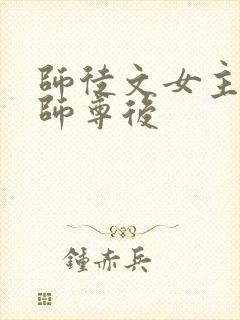 師徒文女主
師尊後
鍾赤兵